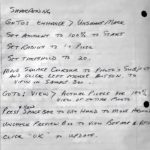 SHARPENING
GOTO: ENHANCE > UNSHARP MASK
SET AMOUNT TO 100% TO START
SET RADIUS TO 1 PIXEL
SET THRESHOLD TO 20.
MOVE SQUARE CURSOR TO SUBJECT
AND CLICK LEFT MOUSE BUTTON TO
VIEW IN SAMPLE BOX.
GOTO: VIEW > ACTUAL PIXELS FOR 100%
VIEW OF ENTIRE PHOTO
PRESS SPACE BAR TO GET HAND TO MOVE AROUND
UNCHECK PREVIEW BOX TO VIEW BEFORE & AFTER
CLICK "OK" TO UPDATE.